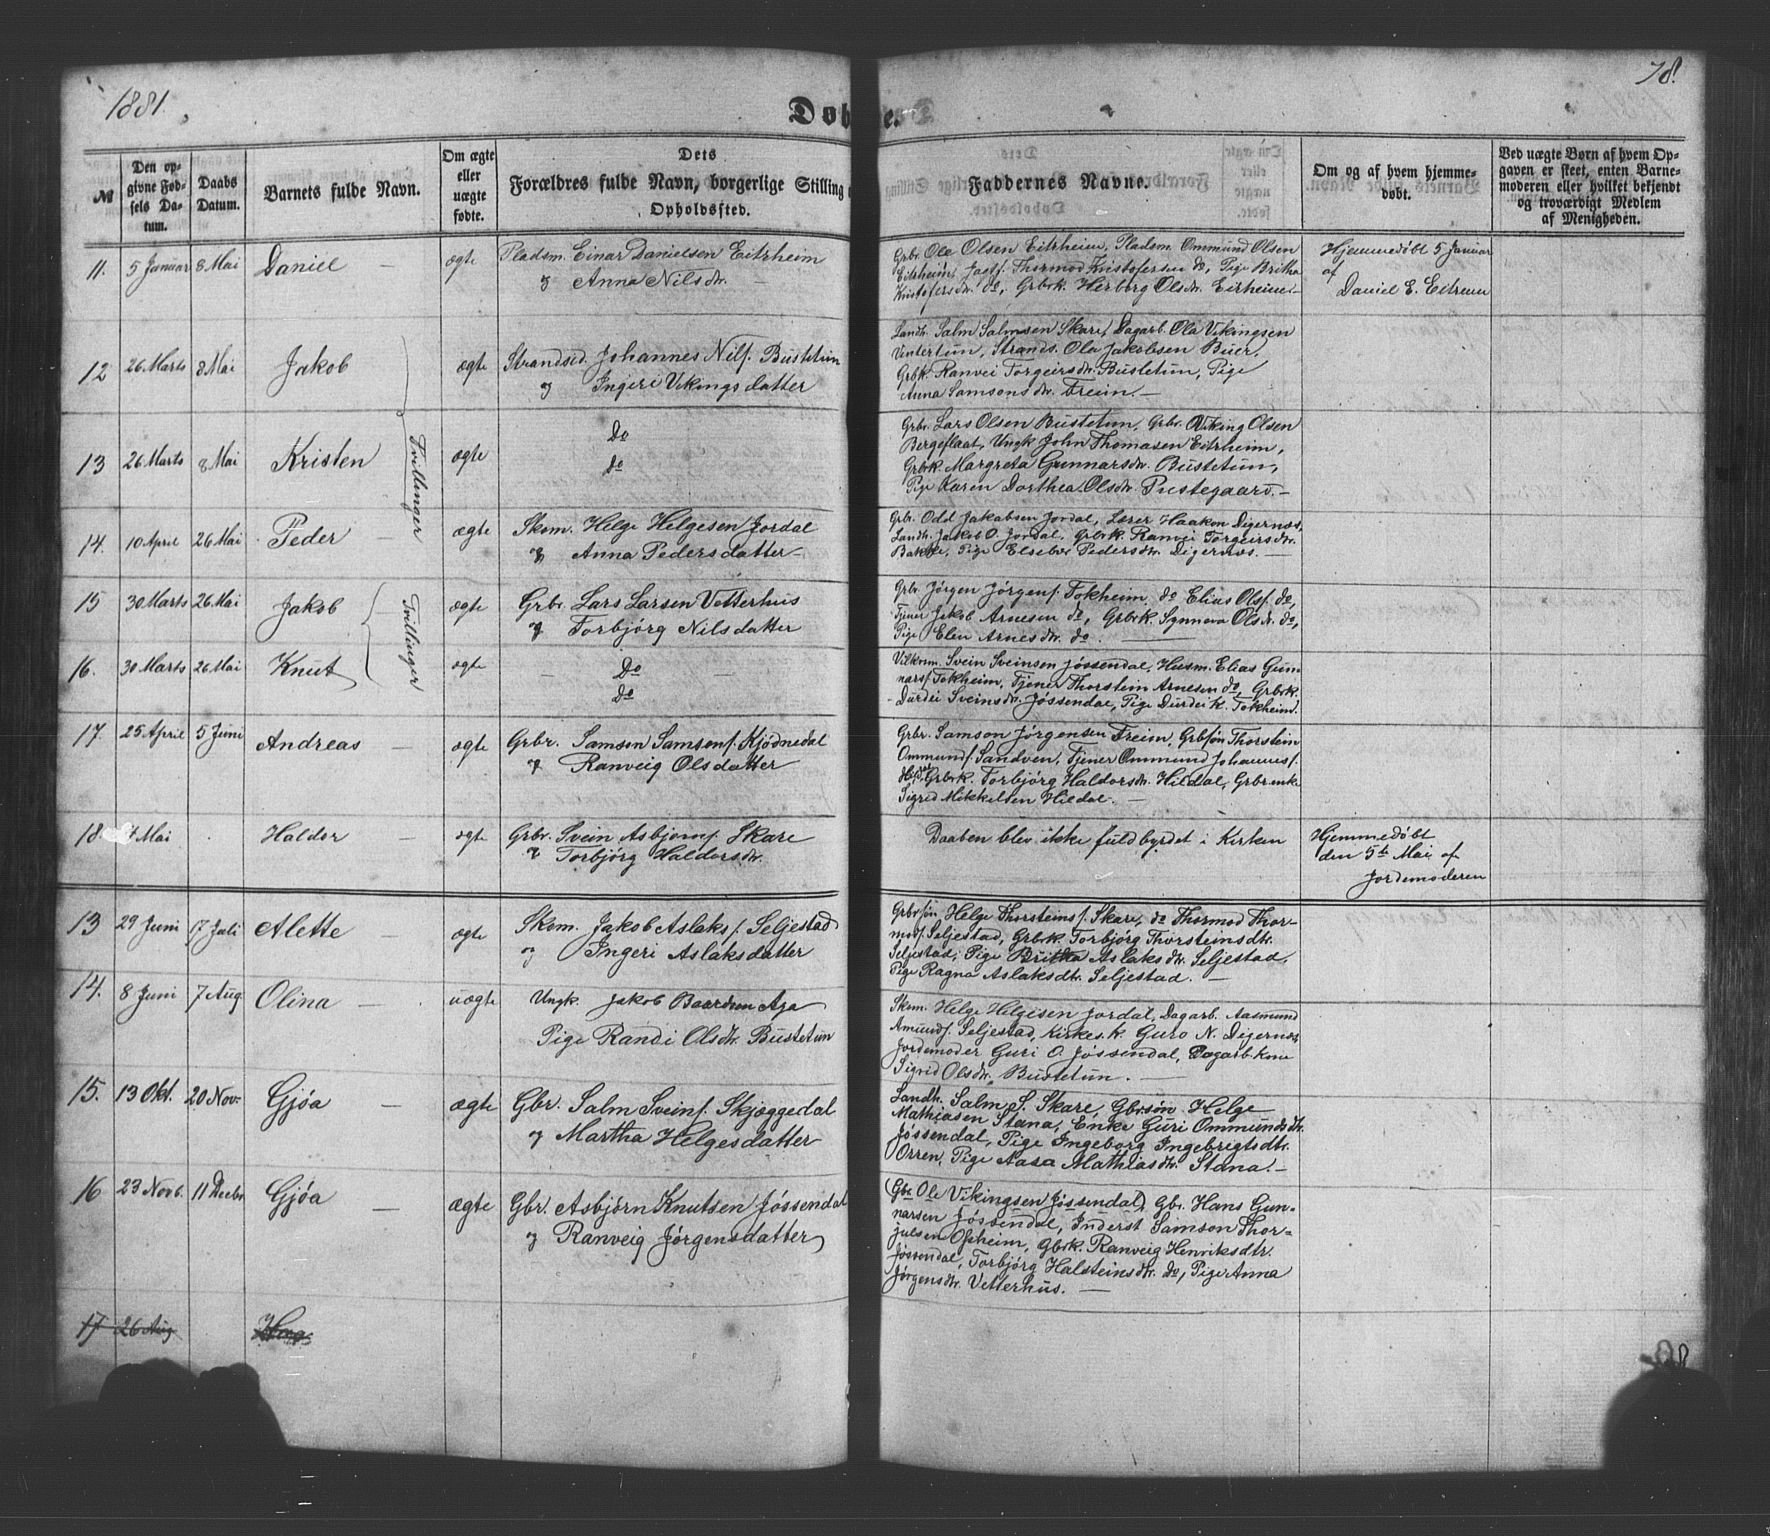 1881.
Døbte.
78.
№
Den opgivne Fødsels Datum.
Daabs Datum.
Barnets fulde Navn.
Om ægte eller uægte fødte.
Dets Forældres fulde Navn, borgerlige Stilling
Opholdssted.
Faddernes Navne.
Om og af hvem hjemmedøbt.
Ved uægte Børn af hvem Opgaven er skeet, enten Barnemoderen eller hvilket bekjendt og troværdigt Medlem af Menigheden.
11. 5 Januar 8 Mai Daniel ægte Pladsm. Einar Danielsen Eitrheim
og Anna Nilsdtr.
Grbr. Ole Olsen Eitrheim, Pladsm. Ommund Olsen
Eitrheim, Thormod Kristofersen do, Pige Britha
Kristofersdtr. do, Grbrk. Herborg Olsdtr. Eitrheim.
Hjemmedøbt 5 Januar
af
Daniel E. Eitreim
12 26 Marts 8 Mai Jakob ægte Strandsid. Johannes Nils. Bustetun
og Ingeri Vikingsdatter
Landh. Salm Salmsen Skare, Dagarb. Ola Vikingsen
Vintertun, Strands. Ola Jakobsen Buer,
Grbk. Ranvei Torgeirsdtr. Bustetun, Pige
Anna Samsonsdtr. Freim.
Tvillinger
13 26 Marts 8 Mai Kristen ægte Do
do
Grbr. Lars Olsen Bustetun, Grbr. Viking Olsen
Bergeflaat, Ungk John Thomasen Eitrheim,
Grbrk. Margreta Gunnarsdtr. Bustetun,
Pige Karen Dorthea Olsdtr. Prestegaard.
14. 10 April 26 Mai Peder ægte Skom. Helge Helgesen Jordal
og Anna Pedersdatter
Gr. Odd Jakobsen Jordal, Lærer Haakon Digernæs,
Landh. Jakob O. Jordal, Grbrk. Ranvei Torgeirsdtr.
Bakke, Pige Elsebe Pedersdtr. Digernæs.
15 30 Marts 26 Mai Jakob ægte Grbr. Lars Larsen Vetterhus
og Torbjörg Nilsdatter
Grbr. Jörgen Jörgens. Tokheim, do Elias Ols. do,
Tjener Jakob Arnesen do, Grbrk. Synneva Olsdtr. do,
Pige Elen Arnesdtr. do.
Tvillinger
16. 30 Marts 26 Mai Knut ægte Do
Do
Svein Sveinsen Jössendal, Husm. Elias Gunnars.
Tokheim, Tjener Thorstein Arnesen do, Grbrk.
Durdei Sveinsdtr. Jössendal, Pige Durdei K. Tokheim.
17. 25 April 5 Juni Andreas ægte Grbr. Samson Samsons. Kjödnedal
og Ranveig Olsdatter
Grbr. Samson Jörgensen Freim, Grbsön Thorstein
Ommunds. Sandven, Tjener Ommund Johannes.
Grbrk. Torbjörg Haldorsdtr. Hildal, Grbrenke
Sigrid Mikkelsen Hildal.
18 4 Mai Haldor ægte Grbr. Svein Asbjörns. Skare
og Torbjörg Haldorsdtr.
Daaben blev ikke fuldbyrdet i Kirken
Hjemmedøbt
den 5te Mai af
Jordemoderen
13 29 Juni 17 Juli Alette ægte Skom. Jakob Aslaks. Seljestad
og Ingeri Aslaksdatter
Grbrsön Helge Thorsteins. Skare, do Thormod Thormos.
Seljestad, Grbrk. Torbjörg Thorsteinsdtr.
Seljestad, Pige Britha Aslaksdtr. Seljestad,
Pige Ragna Aslaksdtr. Seljestad.
14. 8 Juni 7 Aug Olina uægte Ungk. Jakob Baardsen Aga
Pige Randi Olsdtr. Bustetun
Skom. Helge Helgesen Jordal, Dagarb. Aasmund
Amunds. Seljestad, Kirkes.k. Guro N. Digernæs,
Jordemoder Guri O. Jössendal, Dagarb.kone
Sigrid Olsdtr. Bustetun.
15. 13 Okt. 20 Nov. Gjöa ægte Gbr. Salm Sveins. Skjæggedal
og Martha Helgesdatter
Landh. Salm S. Skare, Gbrsön Helge
Mathiasen Stana, Enke Guri Ommundsdtr.
Jössendal, Pige Ingeborg Ingebrigtsdtr.
Orren, Pige Aasa Mathiasdtr. Stana.
16 23 Novb. 11 Decbr. Gjöa ægte Gbr. Asbjörn Knutsen Jössendal
og Ranveig Jörgensdatter
(Gbr. Ole Vikingsen Jössendal), Gbr. Hans Gunnarsen
Jössendal, Inderst Samson Thorjulsen
Opheim, Gbrk. Ranveig Henriksdtr.
Jössendal, Torbjörg Halsteinsdtr. do, Pige Anna
Jörgensdtr. Vetterhus.
17 26 Aug